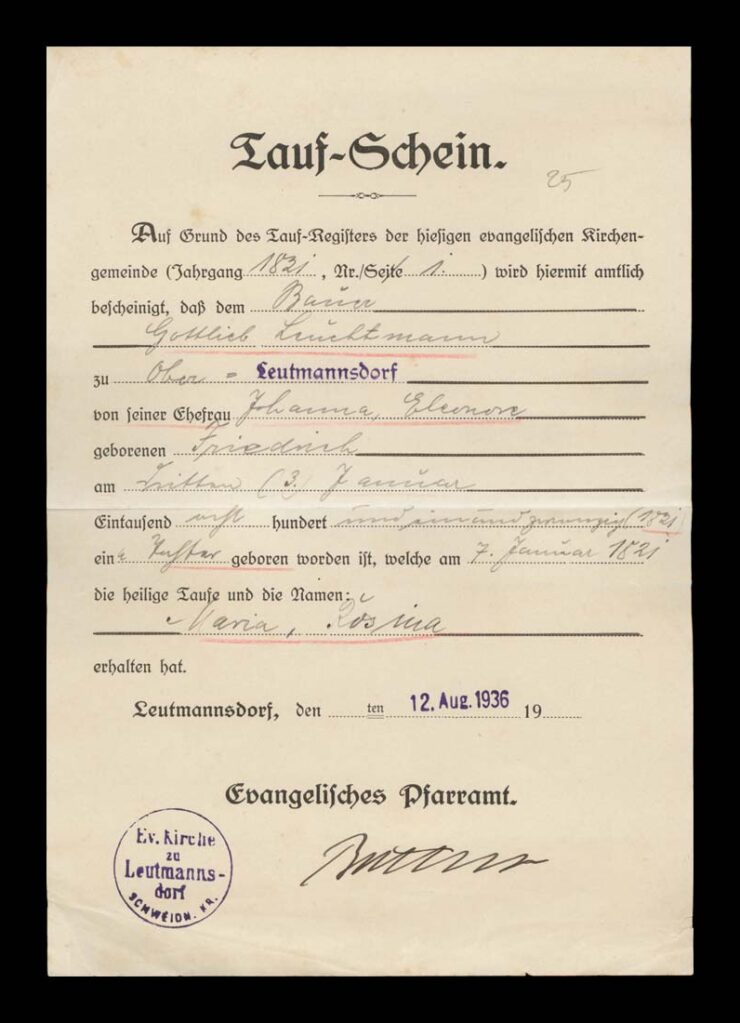 Tauf-Schein.
25
Auf Grund des Tauf-Registers der hiesigen evangelischen Kirchen-
gemeinde (Jahrgang 1821, Nr./Seite 1.) wird hiermit amtlich
bescheinigt, daß dem Bauer
Gottlieb Leuchtmann
zu Ober = Leutmannsdorf
von seiner Ehefrau Johanna, Eleonore
geborenen Friedrich
am dritten (3.) Januar
Eintausend acht hundert und einundzwanzig (1821)
eine Tochter geboren worden ist, welche am 7. Januar 1821
die heilige Taufe und die Namen:
Maria, Rosina
erhalten hat.
Leutmannsdorf, den ten 12. Aug. 1936 19
Evangelisches Pfarramt.
Ev. Kirche
zu
Leutmanns-
dorf
SCHWEIDN. KR.